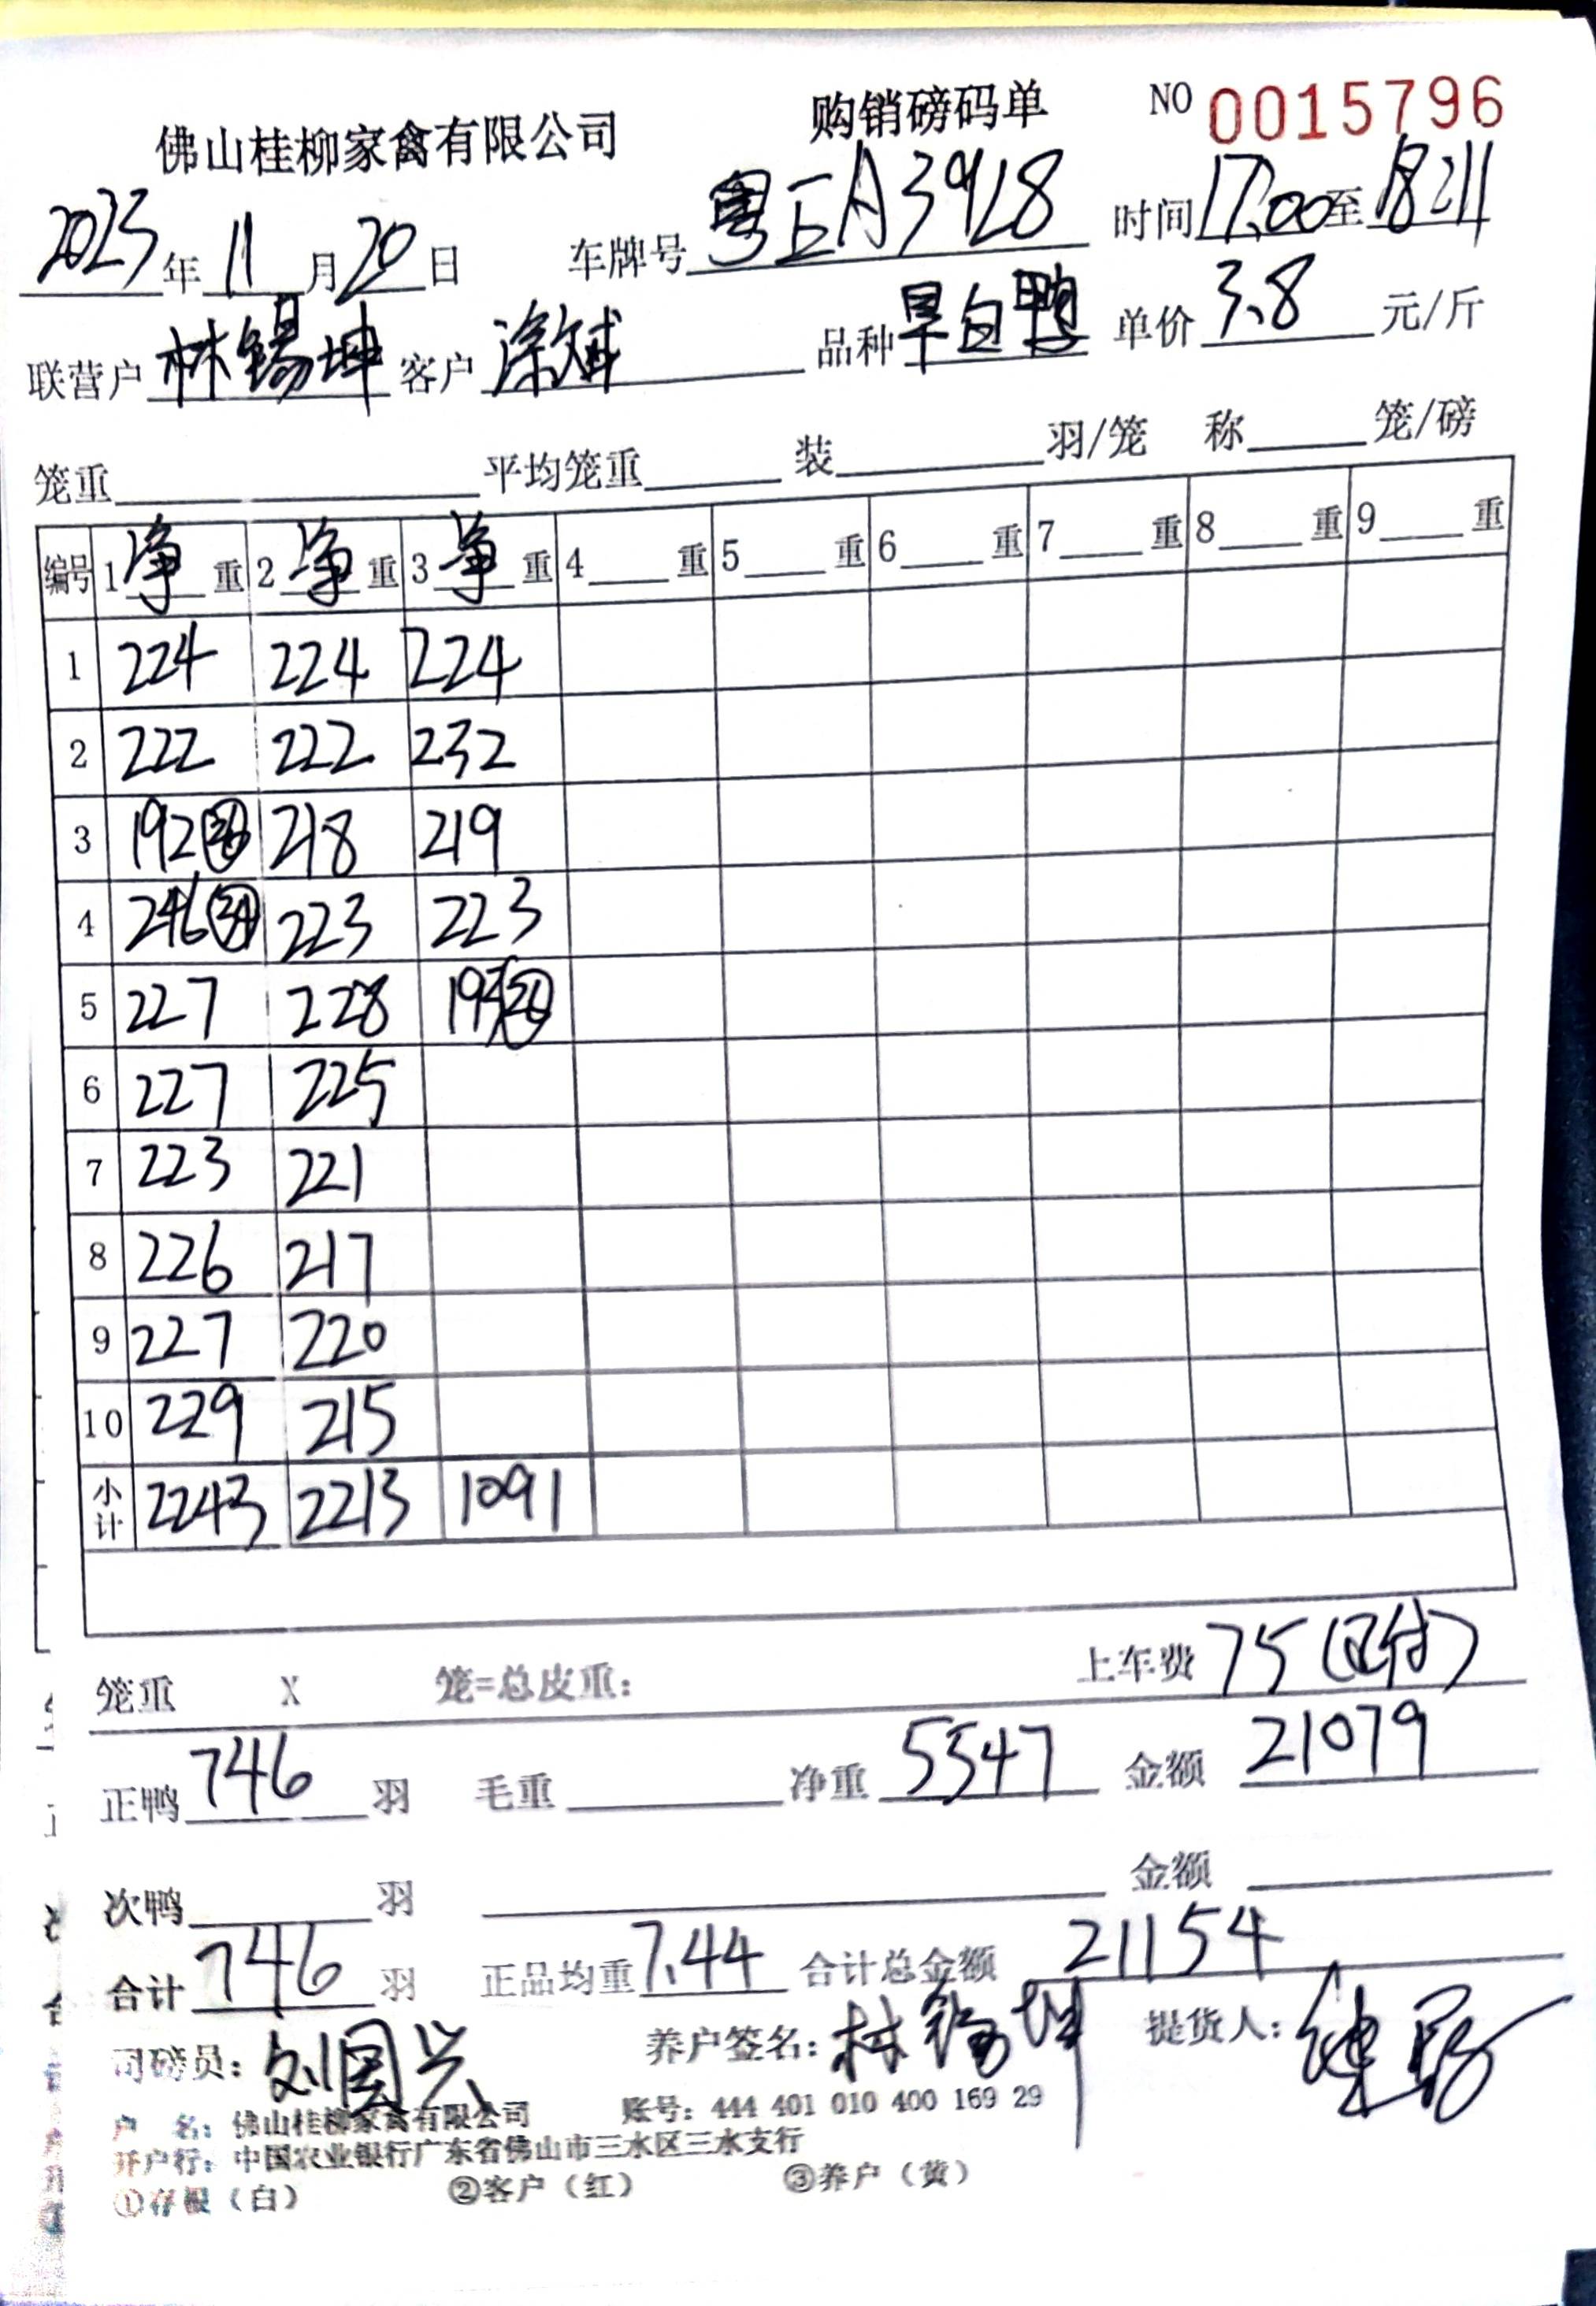 佛山桂柳家禽有限公司 购销磅码单 NO 0015796
2025年11月20日 车牌号 粤EA3928 时间17:00至18:11
联营户 林锡坤 客户 涂斌 品种 旱白鸭 单价 3.8 元/斤
笼重 平均笼重 装 羽/笼 称 笼/磅
编号 1净重 2净重 3净重 4重 5重 6重 7重 8重 9重
1 224 224 224
2 222 222 232
3 192 218 219
4 246 223 223
5 227 228 193
6 227 225
7 223 221
8 226 217
9 227 220
10 229 215
小计 2243 2213 1091
笼重 X 笼=总皮重: 上车费 75(已付)
正鸭 746 羽 毛重 净重 5547 金额 21079
次鸭 羽 金额
合计 746 羽 正品均重 7.44 合计总金额 21154
司磅员: 刘国兴 养户签名: 林锡坤 提货人:
户 名: 佛山桂柳家禽有限公司 账号: 444 401 010 400 169 29
开户行: 中国农业银行广东省佛山市三水区三水支行
①存根（白） ②客户（红） ③养户（黄）